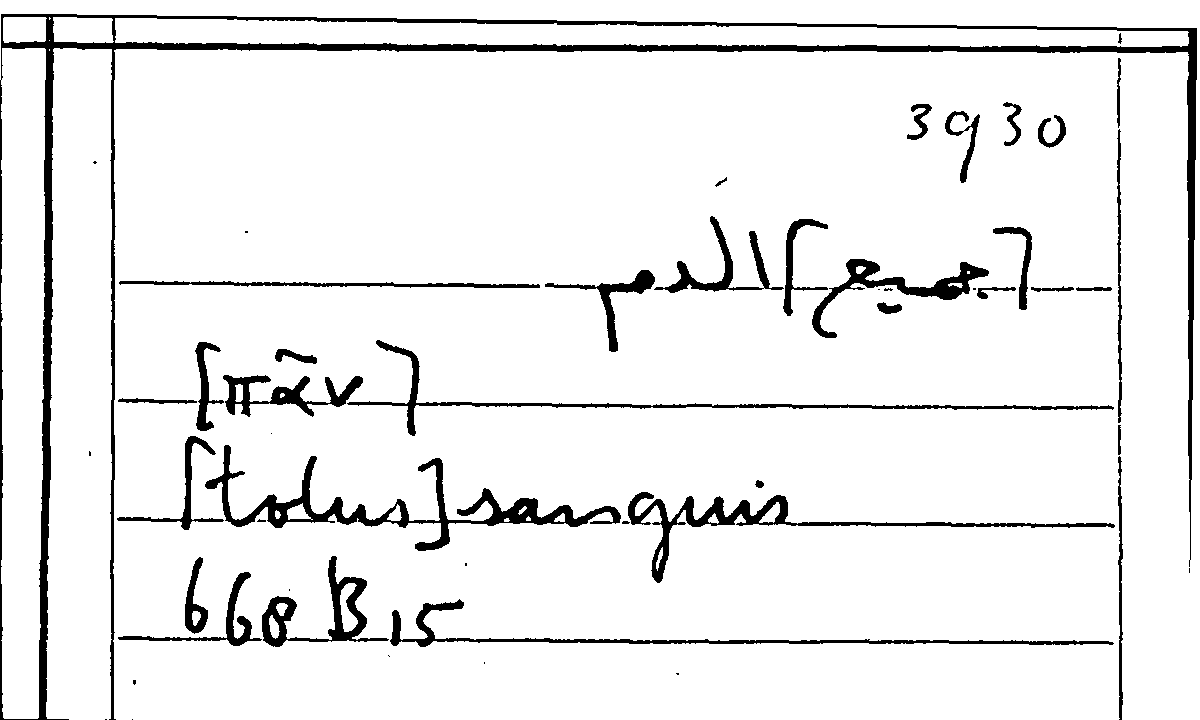 3930
[جميع] الدم
[πᾶν]
[totus] sanguis
668 B 15